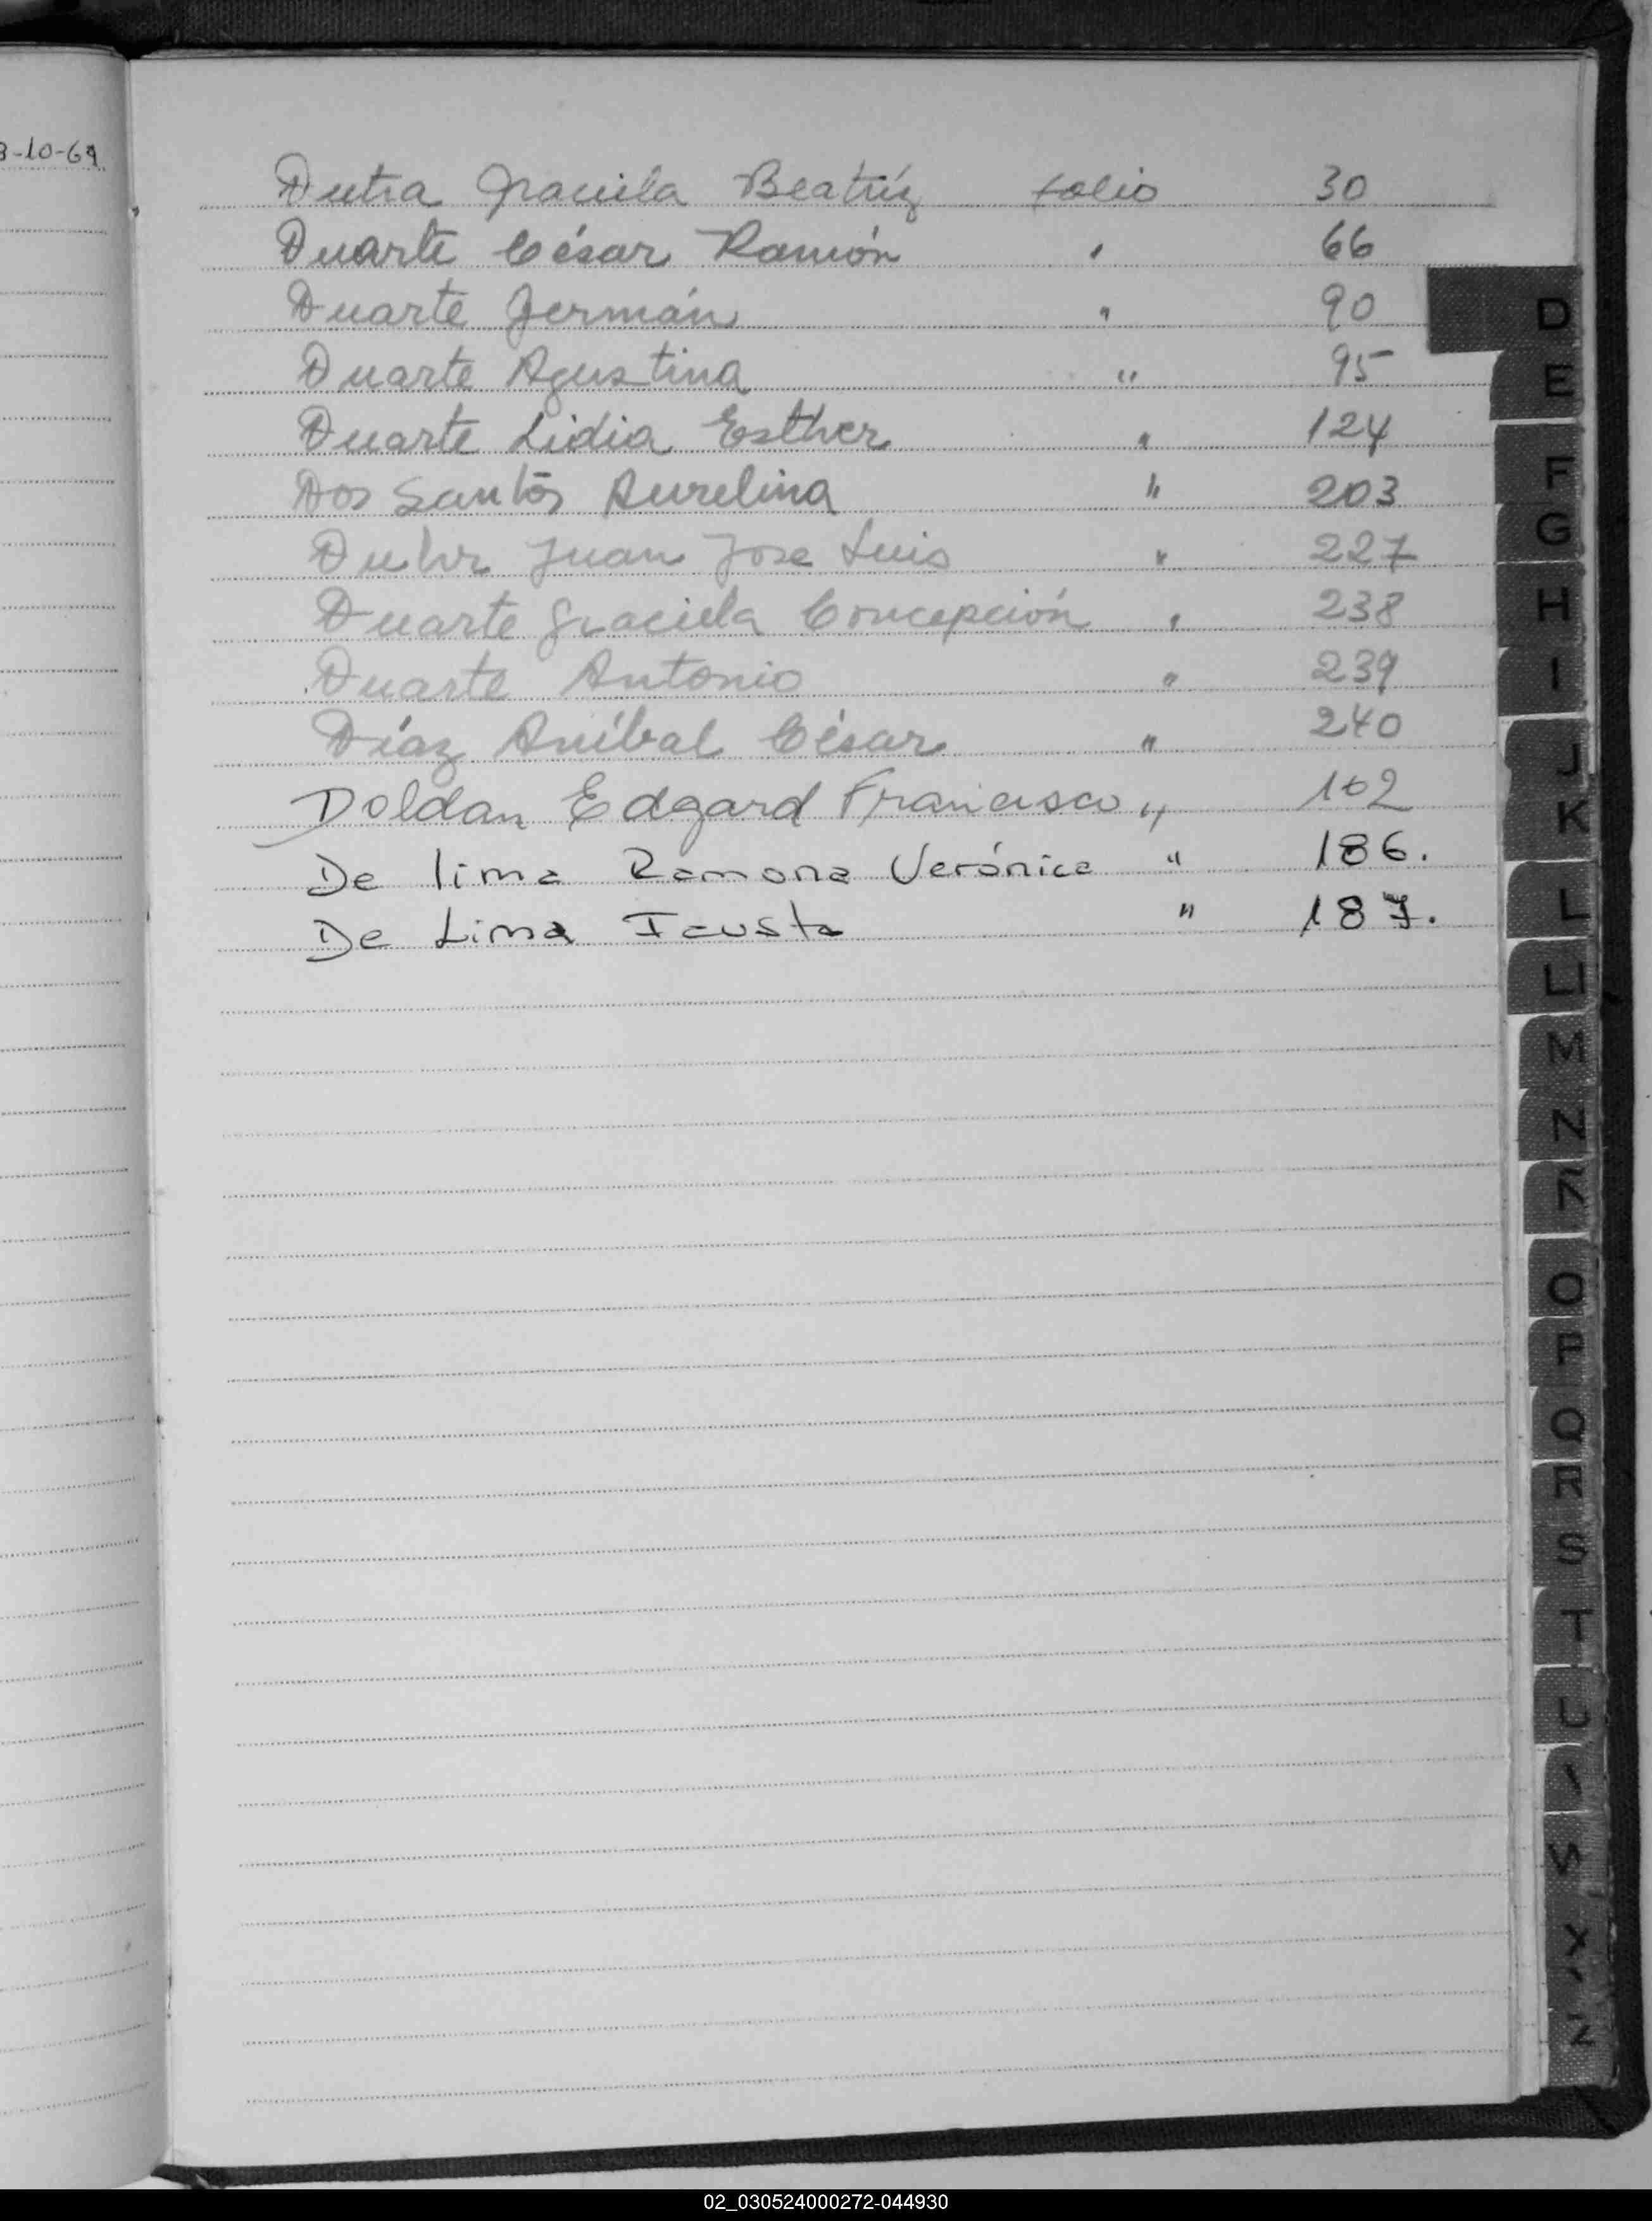 3-10-69
Dutra Graciela Beatríz folio 30
Duarte César Ramón " 66
Duarte Germán " 90
Duarte Agustina " 95
Duarte Lidia Esther " 124
Dos Santos Aurelina " 203
Duhr Juan Jose Luis " 227
Duarte Graciela Concepción " 238
Duarte Antonio " 239
Díaz Aníbal César " 240
Doldan Edgard Francisco " 102
De lima Ramona Verónica " 186.
De Lima Fausta " 187.
D
E
F
G
H
I
J
K
L
LL
M
N
Ñ
O
P
Q
R
S
T
U
W
X
Z
02_030524000272-044930